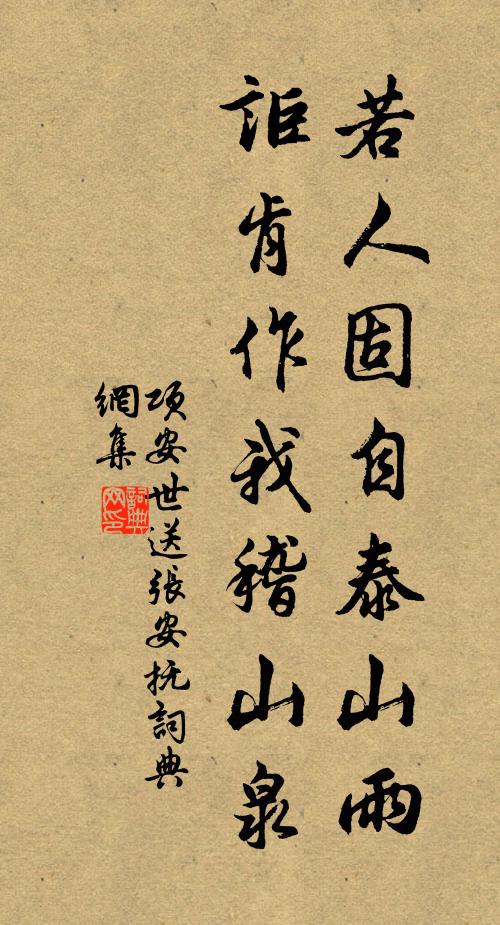 若人固自泰山雨
詎肯作我稽山泉
項安世送張安抚詞典
網集
詞典网印